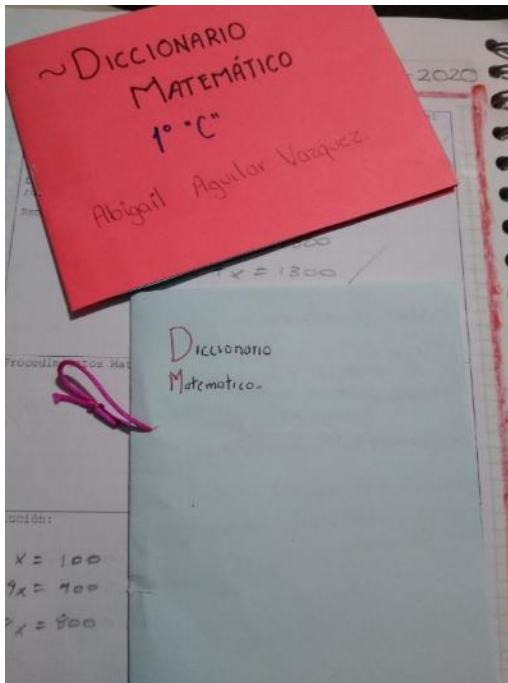 ~DICCIONARIO
MATEMÁTICO
1° "C"
Abigail Aguilar Vazquez.
-2020
x = 1300
Diccionario
Matemático.
Procedimientos Mat
ución:
x = 100
9x = 900
x = 800